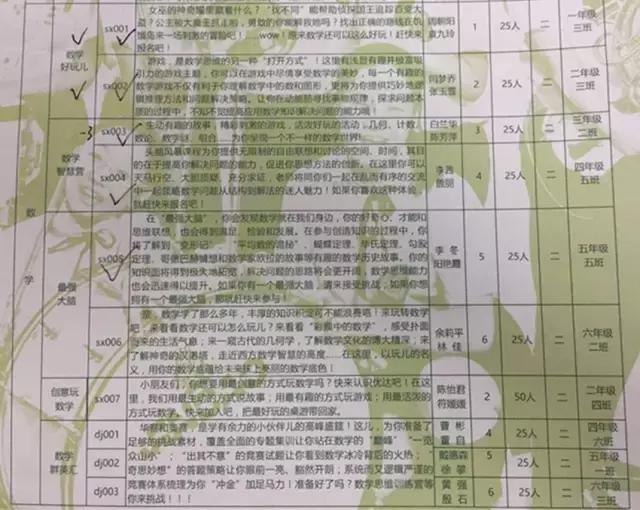 女巫的神奇耀里藏着什么？“找不同”能帮助侦探国王追踪百变大
盗？公主被大黄王抓走啦，勇敢的你能解救她吗？找出正确的路线在饥
饿岛来一场刺激的冒险吧！……wow！原来数学还可以这么好玩！赶快来
报名吧！
sx001
周朝阳
袁九玲
1
25人
二
一年级
三班
数学
好玩儿
游戏，是数学思维的另一种“打开方式”！这里有浅显有趣并极富吸
引力的游戏主题，你可以在游戏中尽情享受数学的美妙，每一个有趣的
数学游戏不仅有利于你理解数学中的数和图形，更将为你提供巧妙地逻
辑推理方法和问题解决策略，让你在动脑筋寻找奥秘原理，探求问题本
质的过程中，不知不觉提高应用数学知识解决问题的能力哦！
sx002
闫梦乔
张玉雪
2
25人
二
二年级
三班
-3
sx003
生动有趣的故事，精彩刺激的游戏，活泼好玩的活动，几何、计数、
数论、数字谜、组合……为你呈现一个不一样的数学世界！
白兰华
陈芳萍
3
25人
二
三年级
二班
数学
智慧营
头脑风暴课程为你提供无限制的自由联想和讨论的空间、时间，其目
的在于提高你解决问题的能力，促进你思想方法的创新。在这里你可以
天马行空、大胆质疑、充分求证，老师将同你们一起在乱而有序的交流
中一起领略数学问题从结构到解法的迷人魅力！如果你喜欢这种体验，
就赶快来报名吧！
sx004
李茜
4
25人
二
四年级
五班
数
学
最强
大脑
在“最强大脑”，你会发现数学就在我们身边，你的好奇心、才能和
思维联想，也会得到满足、检验和发展。在参与创造知识的过程中，你
将了解到“变形记”、“平均数的诡秘”、蝴蝶定理、华氏定理、勾股
定理、哥德巴赫猜想和数学家欧拉的故事等有趣的数学历史故事，你的
知识面将得到极大地拓宽，解决问题的思路将会更开阔，数学思维能力
也会迅速得以提升。如果你有一个最强大脑，请来接受挑战；如果你想
拥有一个最强大脑，那就赶快来参与！
sx005
李冬
阳艳霞
5
25人
二
五年级
五班
亲，数学学了那么多年，丰厚的知识积淀可不能浪费哟！来玩转数学
吧，来看看数学还可以怎么玩儿？来看看“彩票中的数学”，感受扑面
而来的生活气息；来一窥古代的几何学，了解数学文化的博大精深；来
了解神奇的汉诺塔，走近西方数学智慧的高度……在这里，以玩儿的名
义，用你的数学底蕴给未来抹上亮丽的数学底色！
sx006
余莉平
林佳
6
25人
二
六年级
二班
创意玩
数学
sx007
小朋友们，你想要用最创意的方式玩数学吗？快来认识优达吧！在这
里，我们用最生动的方式说故事；用最有趣的方式玩游戏；用最活泼的
方式玩数学。快来加入吧，把最好玩的桌游带回家。
陈怡君
符媛媛
2
50人
二
二年级
四班
数学
群英汇
华赛和奥赛，是学有余力的小伙伴儿的高峰盛筵！这儿，为你准备了
足够的挑战素材，覆盖全面的专题集训让你站在数学的“巅峰”“一览
众山小”；“出其不意”的竞赛试题让你看到数学冰冷背后的火热；
“奇思妙想”的答题策略让你眼前一亮、豁然开朗；系统而又逻辑严谨的
竞赛体系梳理为你“冲金”加足马力！准备好了吗？数学思维训练营等
你来挑战！！！
dj001
曹彬
董自
4
25人
二
四年级
六班
dj002
戴惠森
徐攀
5
25人
二
五年级
一班
dj003
黄强
殷石
6
25人
二
六年级
三班